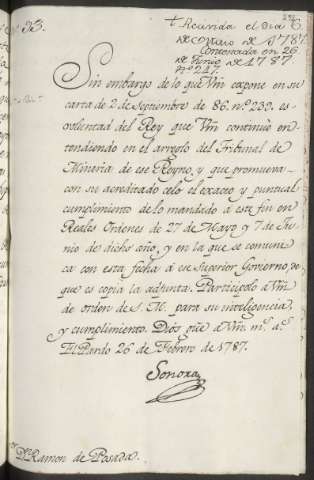 33.
Recivida el Dia 6,
de Mayo de 1787.
Contestada en 26
de Junio de 1787
nº 247.
Sin embargo de lo que Vm expone en su
carta de 2 de Septiembre de 86. nº 239. es
voluntad del Rey que Vm continúe en-
tendiendo en el arreglo del Tribunal de
Mineria de ese Reyno, y que promueva
con su acreditado celo el exacto y puntual
cumplimiento de lo mandado á este fin en
Reales Ordenes de 27 de Mayo, y 7 de Ju-
nio de dicho año, y en la que se comuni-
ca con esta fecha á ese Superior Govierno, de
que es copia la adjunta. Participolo á Vm
de orden de S. M. para su inteligencia,
y cumplimiento. Dios gūe á Vm. m.s a.s
El Pardo 26 de Febrero de 1787.
Sonora
D.n Ramon de Posada.